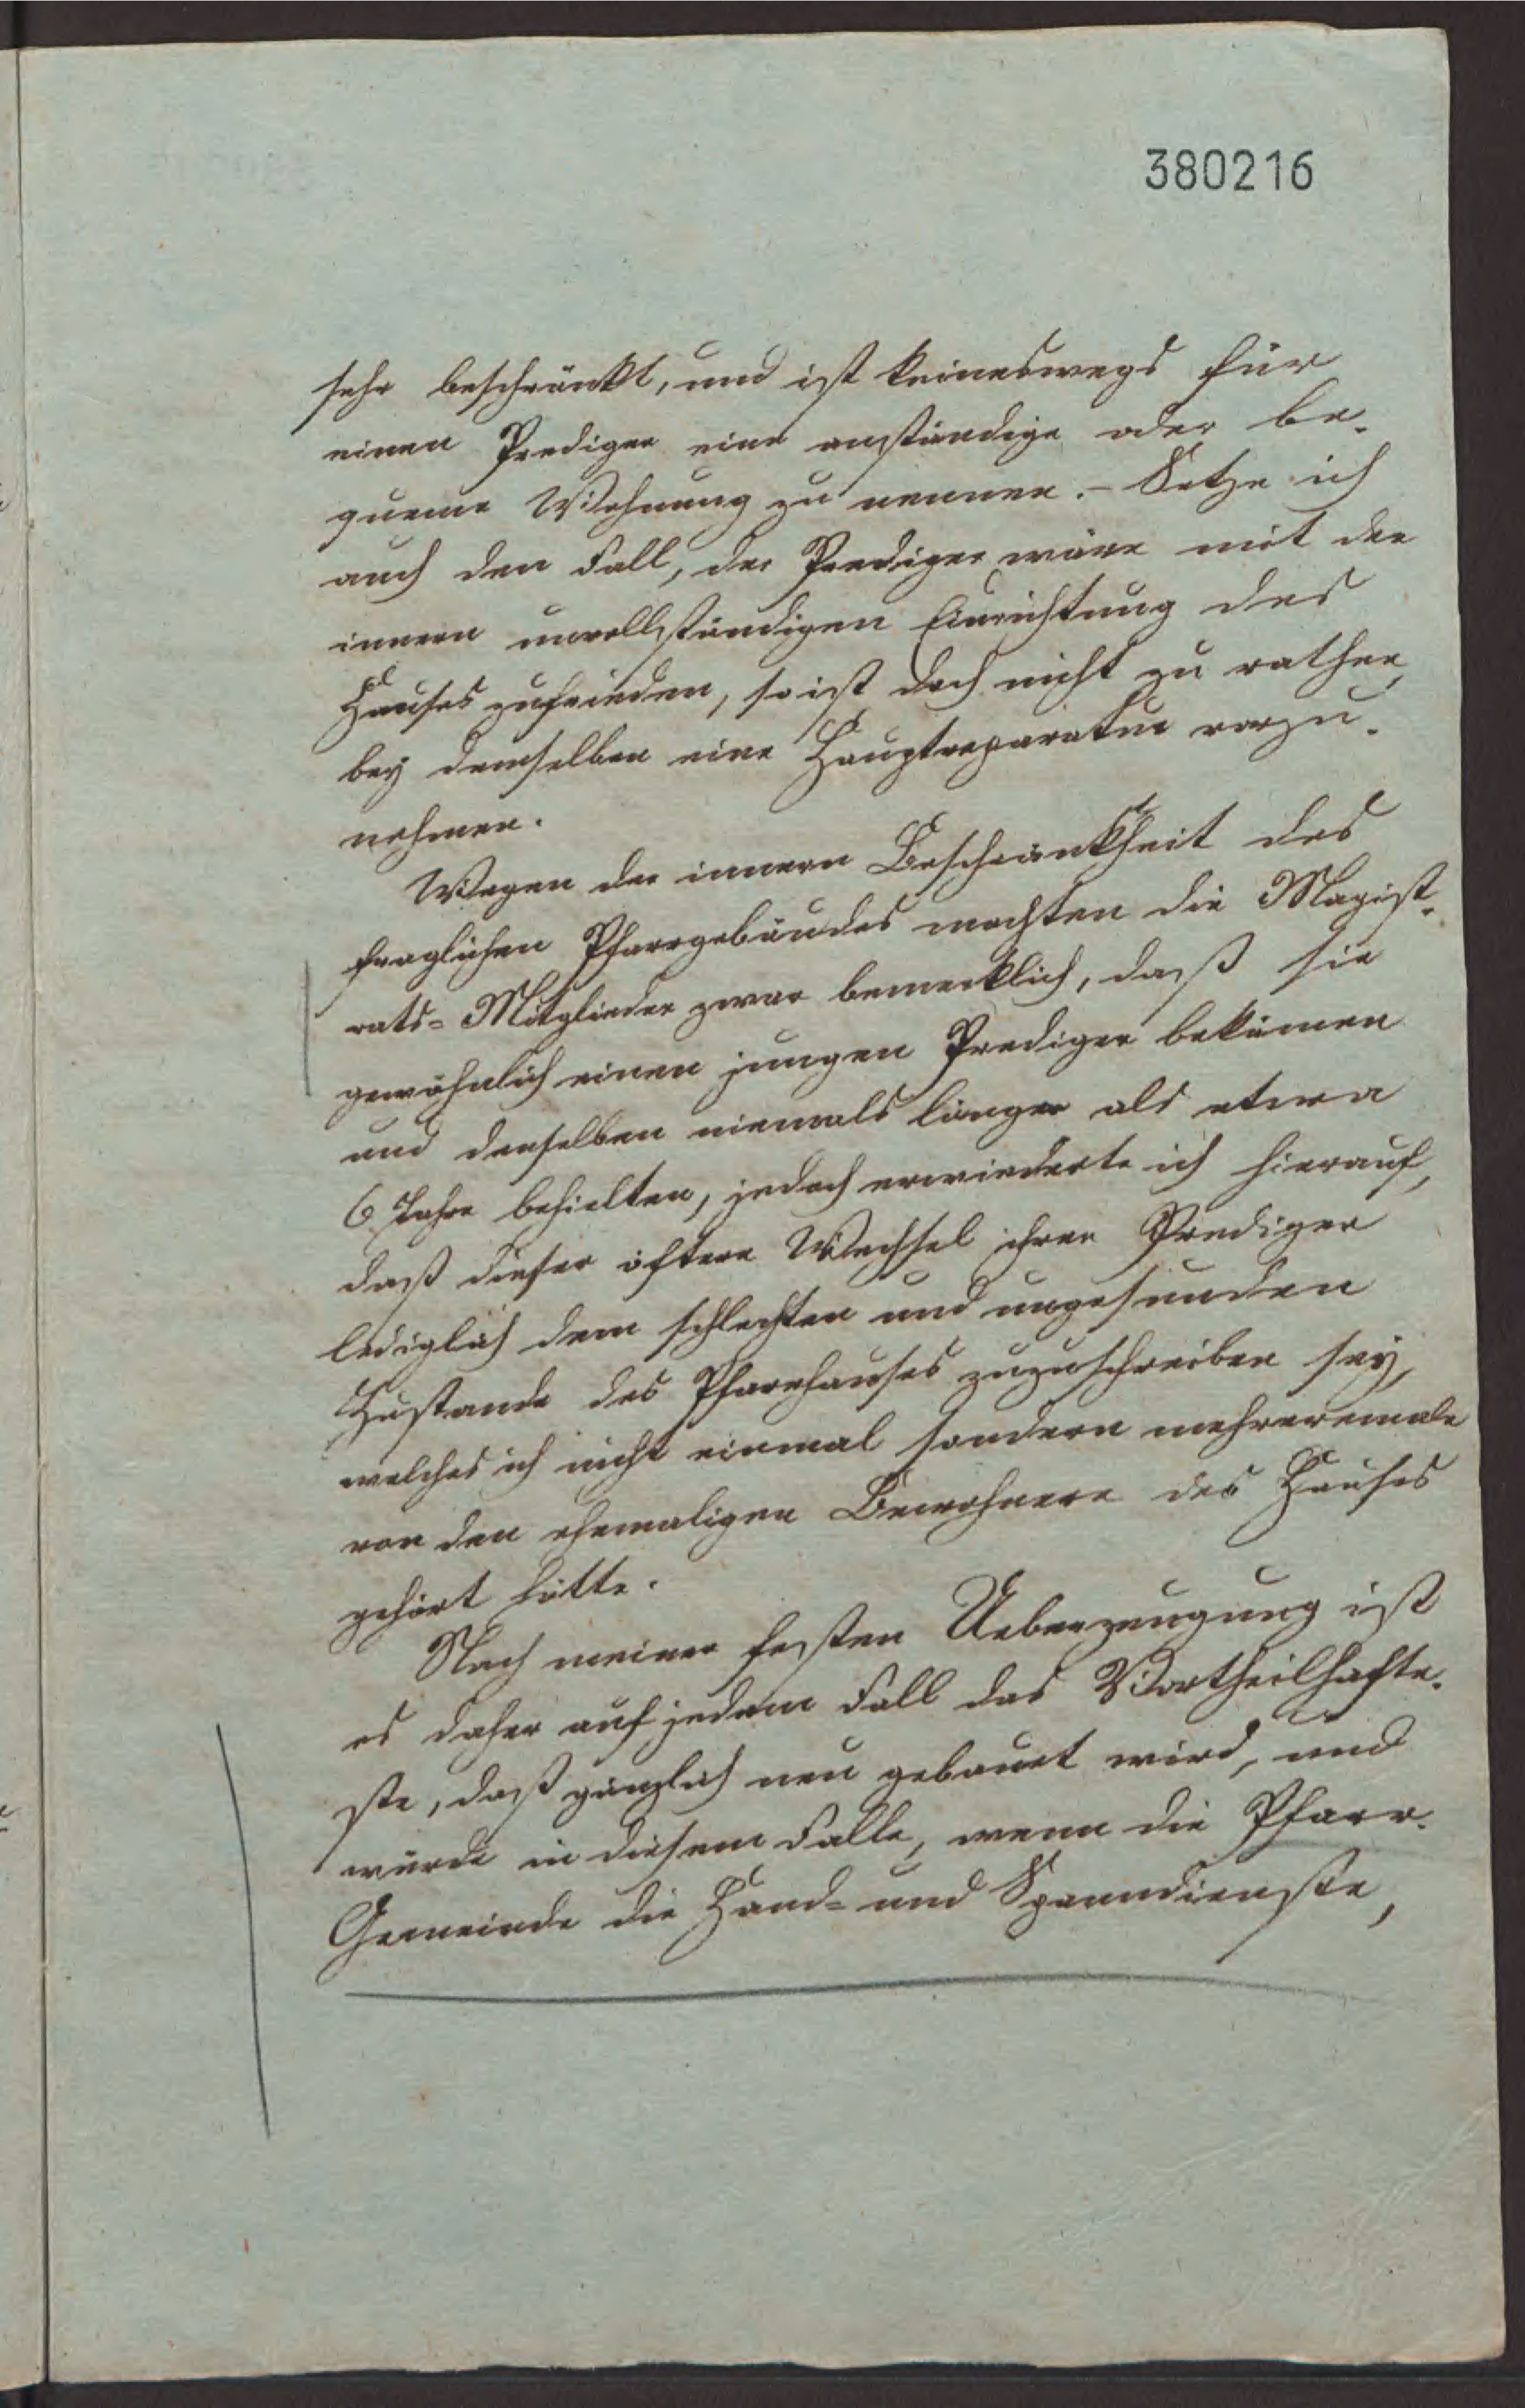 380216
sehr beschränkt, und ist keineswegs für
einen Prediger eine anständige oder be-
queme Wohnung zu nennen. – Setze ich
auch den Fall, der Prediger wäre mit der
innern unvollständigen Einrichtung des
Hauses zufrieden, so ist doch nicht zu rathen,
bey demselben eine Hauptreparatur vorzu-
nehmen.
Wegen der innern Beschränktheit des
fraglichen Pfarrgebäudes machten die Magist-
rats-Mitglieder zwar bemerklich, daß sie
gewöhnlich einen jungen Prediger bekämen
und denselben niemals länger als etwa
6 Jahre behielten, jedoch erwiederte ich hierauf,
daß dieser öftere Wechsel ihrer Prediger
lediglich dem schlechten und ungesunden
Zustande des Pfarrhauses zuzuschreiben sey,
welches ich nicht einmal sondern mehreremale
von den ehemaligen Bewohnern des Hauses
gehört hätte.
Nach meiner festen Ueberzeugung ist
es daher auf jedem Fall das Vortheilhafte-
ste, daß gänzlich neu gebauet wird, und
würde in diesem Falle, wenn die Pfarr-
Gemeinde die Hand- und Spanndienste,